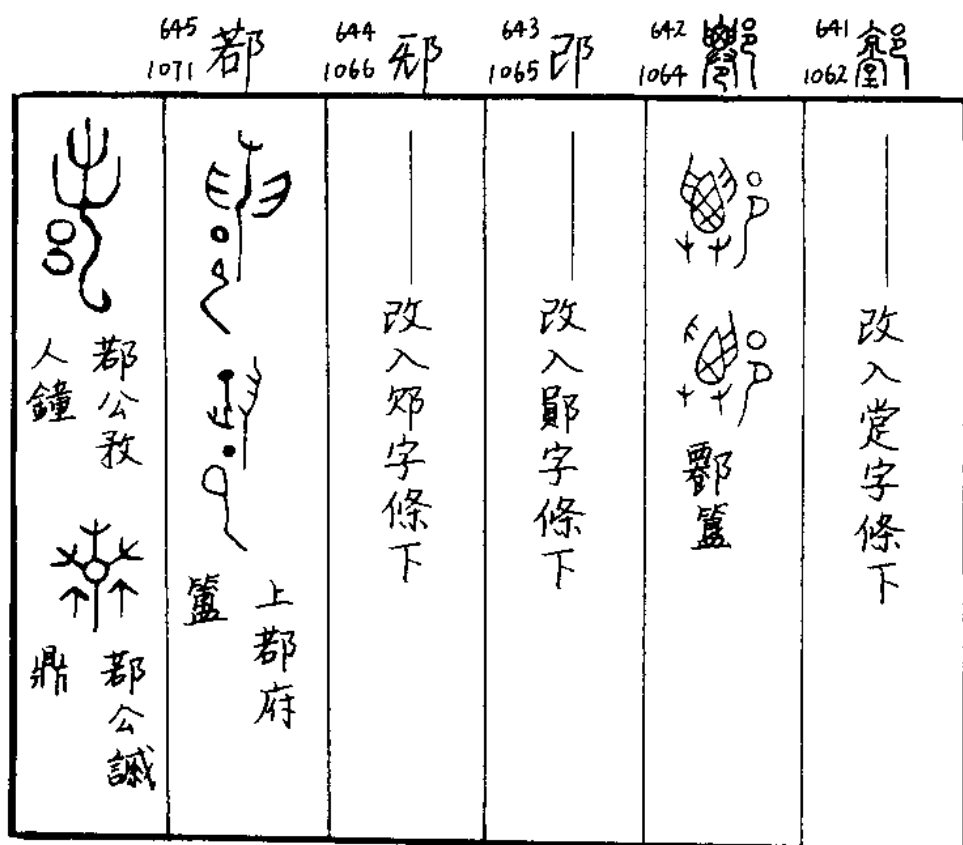 641
1062
改入 字條下
642
1064
簠
643
1065
改入鄖字條下
644
1066
改入 字條下
645
1071
鄀
上鄀府
簠
鄀公敄
人鐘
鄀公諴
鼎